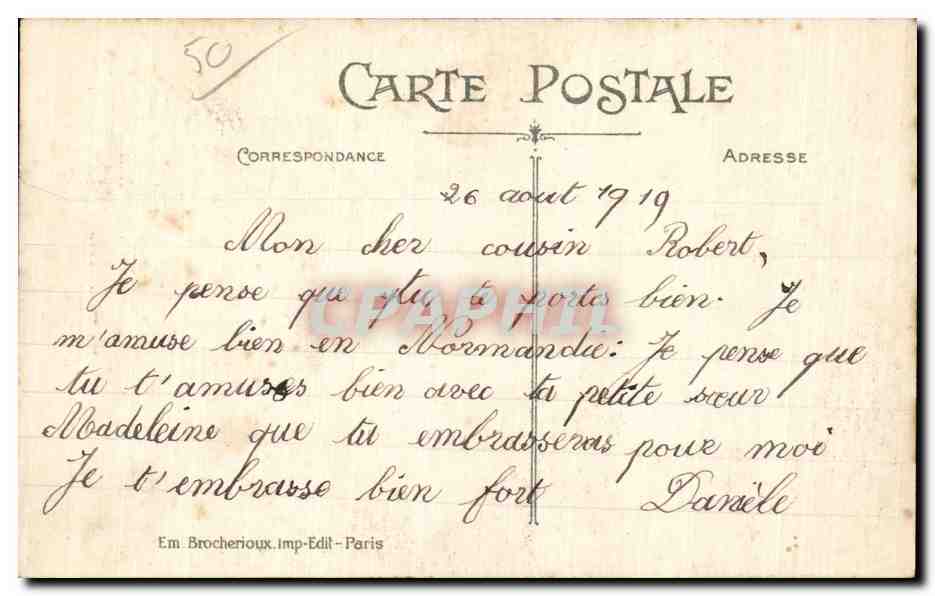 50
CARTE POSTALE
CORRESPONDANCE
ADRESSE
26 aout 1919
Mon cher cousin Robert,
Je pense que tu te portes bien. Je
m'amuse bien en Normandie. Je pense que
tu t'amuses bien avec ta petite sœur
Madeleine que tu embrasseras pour moi
Je t'embrasse bien fort Danièle
CPAPHIL
Em. Brocherioux. Imp-Edit - Paris